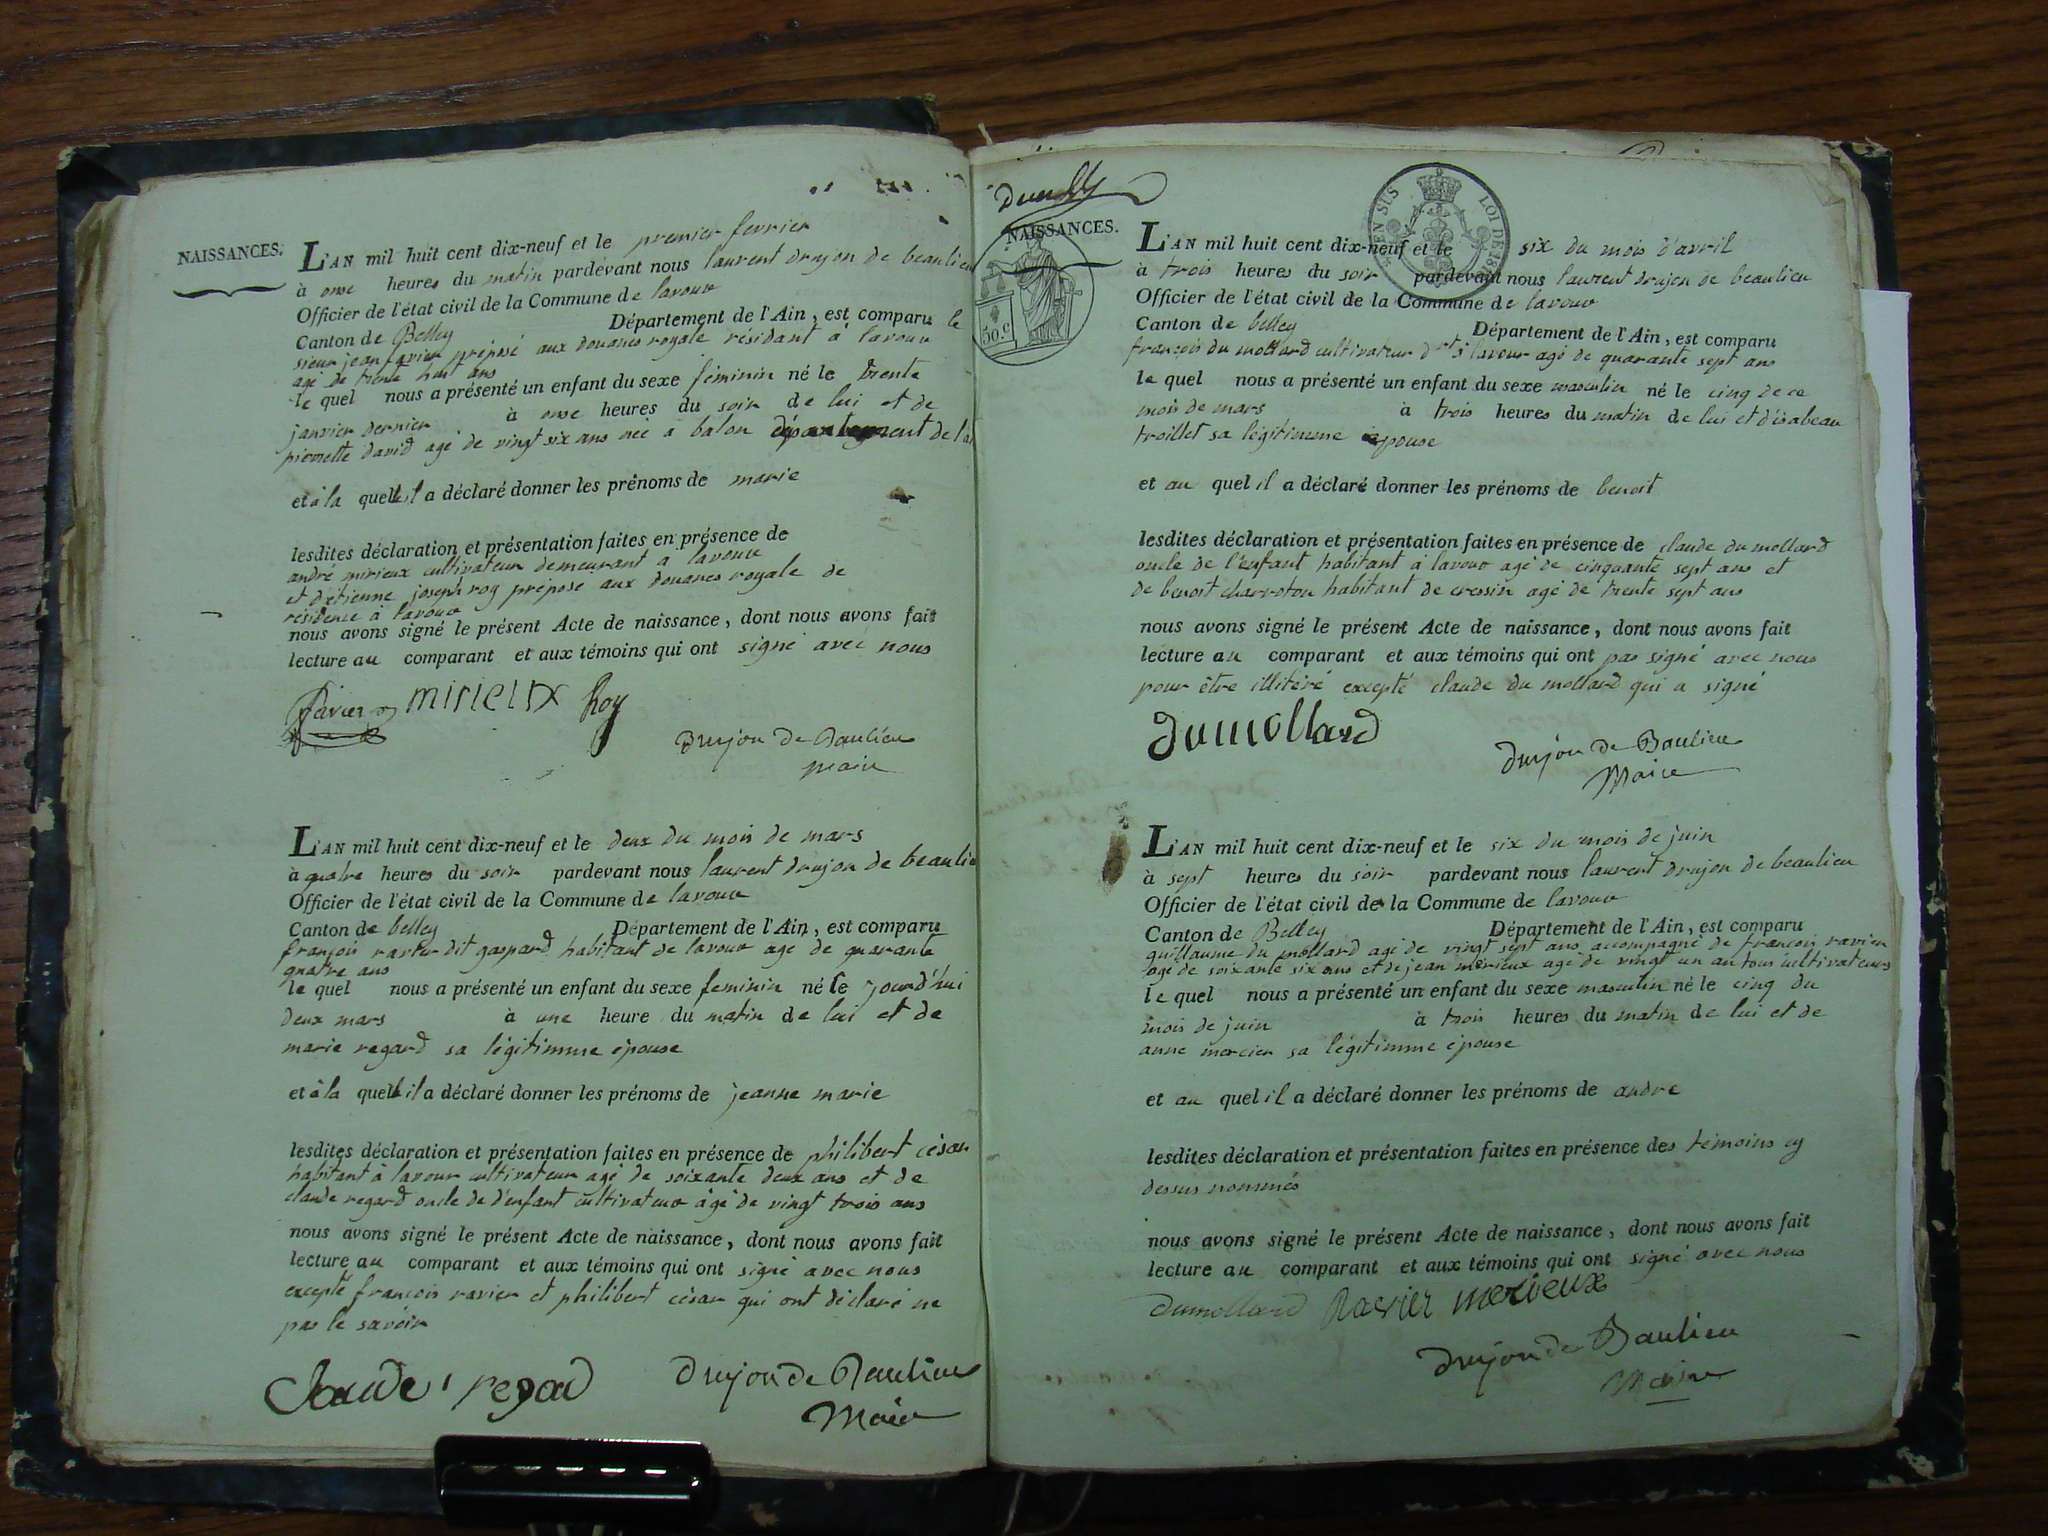 NAISSANCES.
L'AN mil huit cent dix-neuf et le premier fevrier
à onse heures du matin pardevant nous laurent drujon de beaulieu
Officier de l'état civil de la Commune de lavour
Canton de Belley Département de l'Ain, est comparu le
sieur jean favier préposé aux douanes royale résidant à lavour
agé de trente huit ans
le quel nous a présenté un enfant du sexe féminin né le trente
janvier dernier à onse heures du soir de lui et de
pierrette david agé de vingt six ans née a balon département de l'ai
et à la quelle il a déclaré donner les prénoms de marie
lesdites déclaration et présentation faites en présence de
andré mirieux cultivateur demeurant a lavour
et d'étienne joseph roy préposé aux douanes royale de
résidence à lavour
nous avons signé le présent Acte de naissance, dont nous avons fait
lecture au comparant et aux témoins qui ont signé avec nous
favier mirieux Roy
Drujon de Baulieu
Maire
L'AN mil huit cent dix-neuf et le deux du mois de mars
à quatre heures du soir pardevant nous laurent drujon de beaulieu
Officier de l'état civil de la Commune de lavour
Canton de belley Département de l'Ain, est comparu
françois ravier dit gaspard habitant de lavour agé de quarante
quatre ans
le quel nous a présenté un enfant du sexe feminin né le jourd'hui
deux mars à une heure du matin de lui et de
marie regard sa légitimme épouse
et à la quelle il a déclaré donner les prénoms de jeanne marie
lesdites déclaration et présentation faites en présence de philibert césar
habitant à lavour cultivateur agé de soixante deux ans et de
claude regard oncle de d'enfant cultivateur âgé de vingt trois ans
nous avons signé le présent Acte de naissance, dont nous avons fait
lecture au comparant et aux témoins qui ont signé avec nous
excepté françois ravier et philibert césar qui ont déclaré ne
pas le savoir
Claude regard Drujon de Baulieu
Maire
NAISSANCES.
50.c
EN SUS LOI DE 18
L'AN mil huit cent dix-neuf et le six du mois d'avril
à trois heures du soir pardevant nous laurent drujon de beaulieu
Officier de l'état civil de la Commune de lavour
Canton de belley Département de l'Ain, est comparu
françois du mollard cultivateur d'rt à lavour agé de quarante sept ans
le quel nous a présenté un enfant du sexe masculin né le cinq de ce
mois de mars à trois heures du matin de lui et d'isabeau
troillet sa légitimme épouse
et au quel il a déclaré donner les prénoms de benoit
lesdites déclaration et présentation faites en présence de claude du mollard
oncle de l'enfant habitant à lavour agé de cinquante sept ans et
de benoit charroton habitant de cressin agé de trente sept ans
nous avons signé le présent Acte de naissance, dont nous avons fait
lecture au comparant et aux témoins qui ont pas signé avec nous
pour être illitéré excepté claude du mollard qui a signé
dumollard
Drujon de Baulieu
Maire
L'AN mil huit cent dix-neuf et le six du mois de juin
à sept heures du soir pardevant nous laurent drujon de beaulieu
Officier de l'état civil de la Commune de lavour
Canton de Belley Département de l'Ain, est comparu
guillaume du mollard agé de vingt sept ans accompagné de francois ravier
agé de soixante six ans et de jean mérieux agé de vingt un an tous cultivateurs
le quel nous a présenté un enfant du sexe masculin né le cinq du
mois de juin à trois heures du matin de lui et de
anne mercier sa légitimme épouse
et au quel il a déclaré donner les prénoms de andre
lesdites déclaration et présentation faites en présence des témoins cy
dessus nommés
nous avons signé le présent Acte de naissance, dont nous avons fait
lecture au comparant et aux témoins qui ont signé avec nous
dumollard Ravier merieux
Drujon de Baulieu
Maire